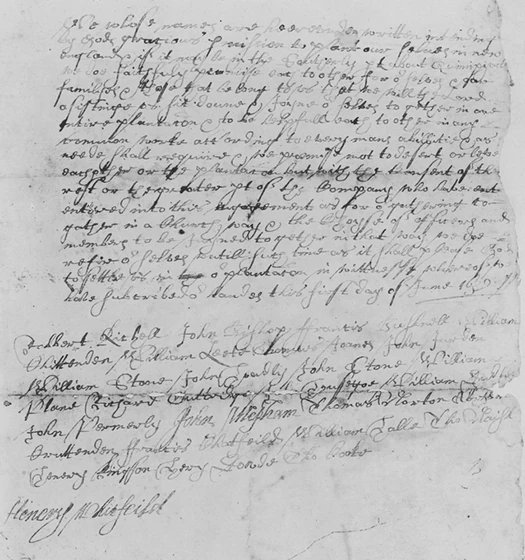 We whose names are heere under written intending
by Gods gracious p'mission to plant our selves in new
england & if it may be in the southerly pt about Quinnipiack
we doe faithfully promise ech to other for o' selves & for
families & those that belong to us that we will
assisting us sit downe & Joyne o' selves to gether in one
entire plantation & to be helpfull ech to other in any
common worke according to every mans abilitie & as
neede shall require & we promise not to desert or leave
each other or the plantation but with the consent of the
rest or the greater pt of the Company who have ent
entered into this engagement as for o' gathering to
gether in a Church way & the choyse of officers and
members to be Joyned to gether in that way we doe
refer o' selves untill such time as it shall please God
to settle us in o' plantation in wittnesse whereof we
have subscribed o' handes this first day of June 1639
Robbert Kitchell John Bishop Francis Bushnell William
Chittenden William Leete Thomas Joanes John Jurden
William Stone John Hoadly John Stone William
Plane Richard Guttridge William Dudley
John Permerly John Mepham Thomas Norton Abraham
Cruttenden Francis Chatfeild William Halle Tho Naish
Henery Kingnon Henry Dowde Tho Cooke
Henery Whitfeild